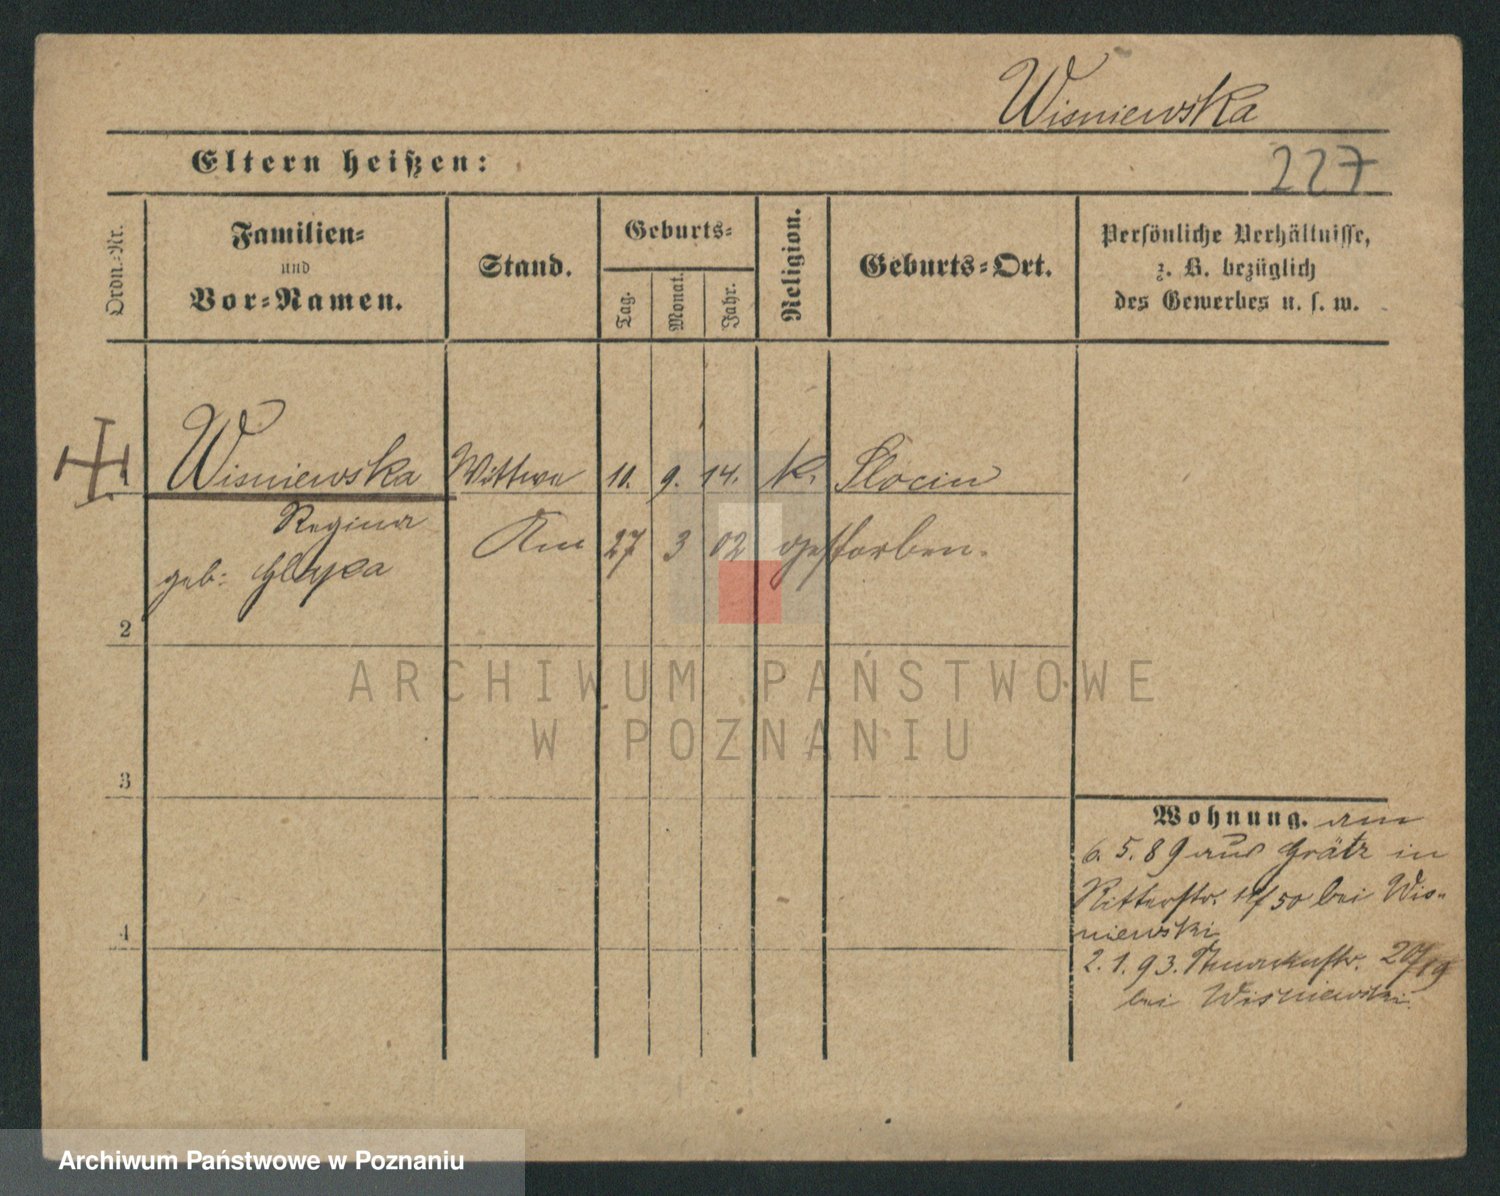 Wisniewska
Eltern heißen:
227
Ordn.-Nr.
Familien-
und
Vor-Namen.
Stand.
Geburts-
Tag.
Monat.
Jahr.
Religion.
Geburts-Ort.
Persönliche Verhältnisse,
z. B. bezüglich
des Gewerbes u. s. w.
1 Wisniewska Wittwe 10. 9. 14. K. Slocin
Regina
Am 27 3 02 gestorben.
geb:
2
3
4
Wohnung. am
6. 5. 89 aus Grätz in
Ritterstr. 50 bei Wis-
niewski
2. 1. 93. 20/19
bei Wisniewski.
ARCHIWUM PAŃSTWOWE
W POZNANIU
Archiwum Państwowe w Poznaniu